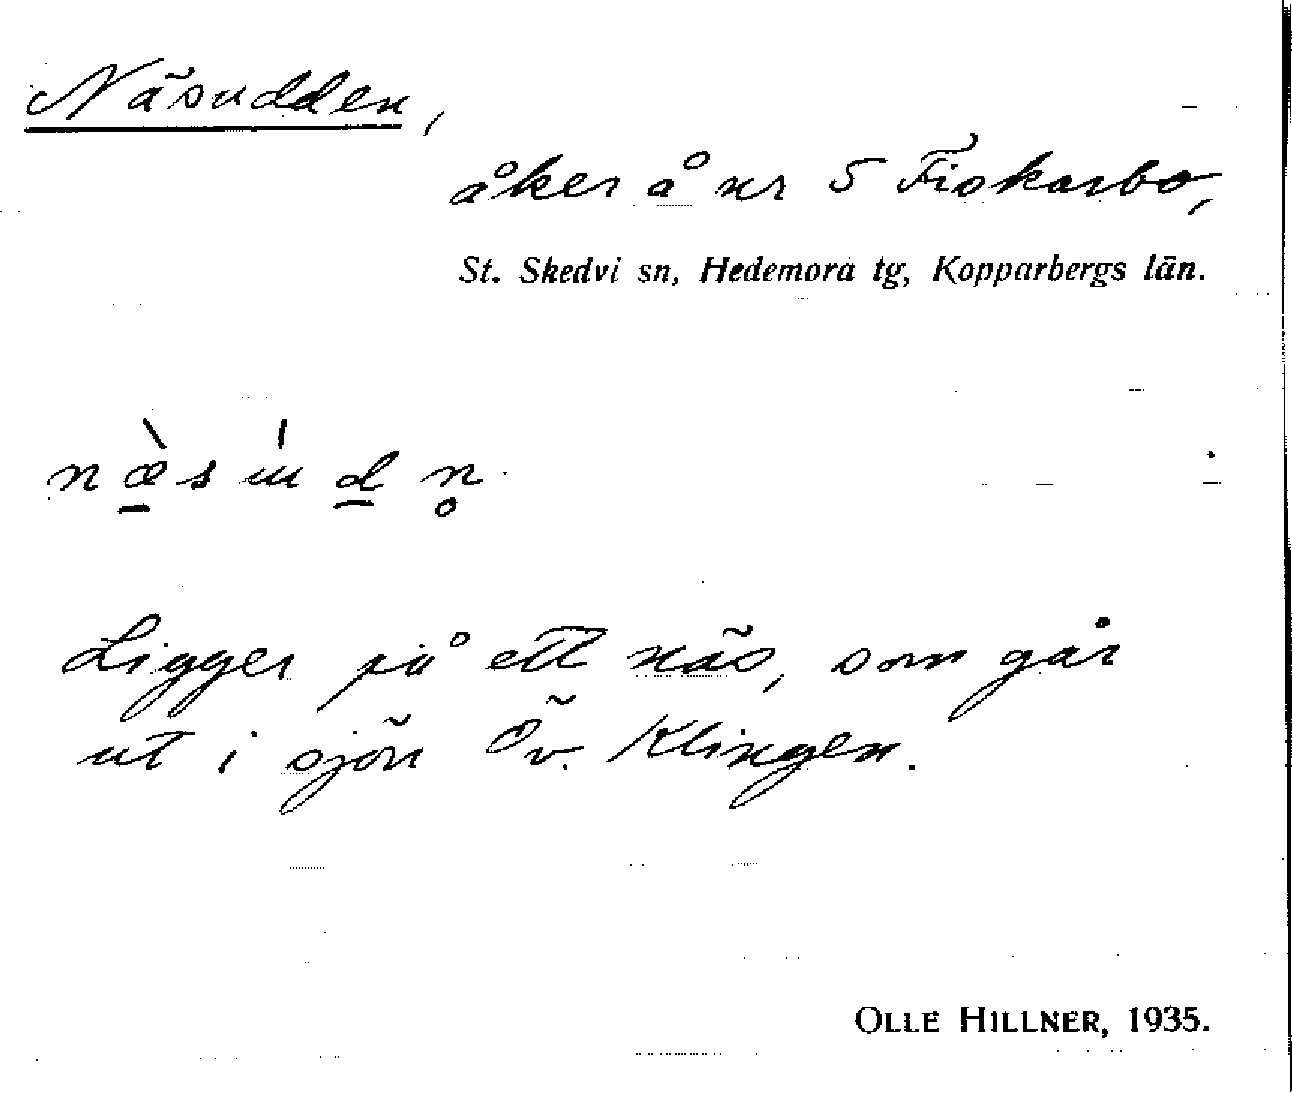 Näsudden,
åker å nr 5 Fiskarbo,
St. Skedvi sn, Hedemora tg, Kopparbergs län.
Ligger på ett näs, som går
ut i sjön Öv. Klingen.
OLLE HILLNER, 1935.